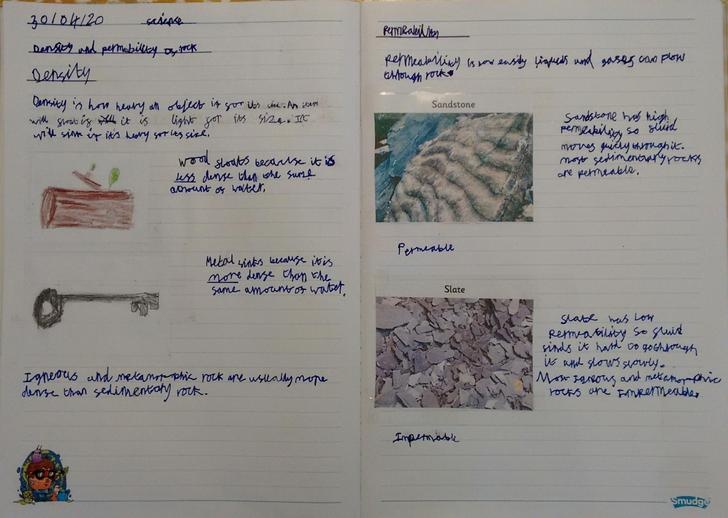 30/04/20 science
Density and permability of rock
Density
Density is how heavy an object is for its size. An item
will float if it is light for its size. It
will sink if it's heavy for its size.
Wood floats because it is
less dense than the same
amount of water.
Metal sinks because it is
more dense than the
same amount of water.
Igneous and metamorphic rock are usually more
dense than sedimentary rock.
Permeability
Permeability is how easily liquids and gases can flow
through rock.
Sandstone
Sandstone has high
permeability so fluid
moves through it.
most sedimentary rocks
are permeable.
Permeable
Slate
Slate has low
permeability so fluid
finds it hard to go through
it and flows slowly.
Most igneous and metamorphic
rocks are impermeable.
Impermable
Smudge